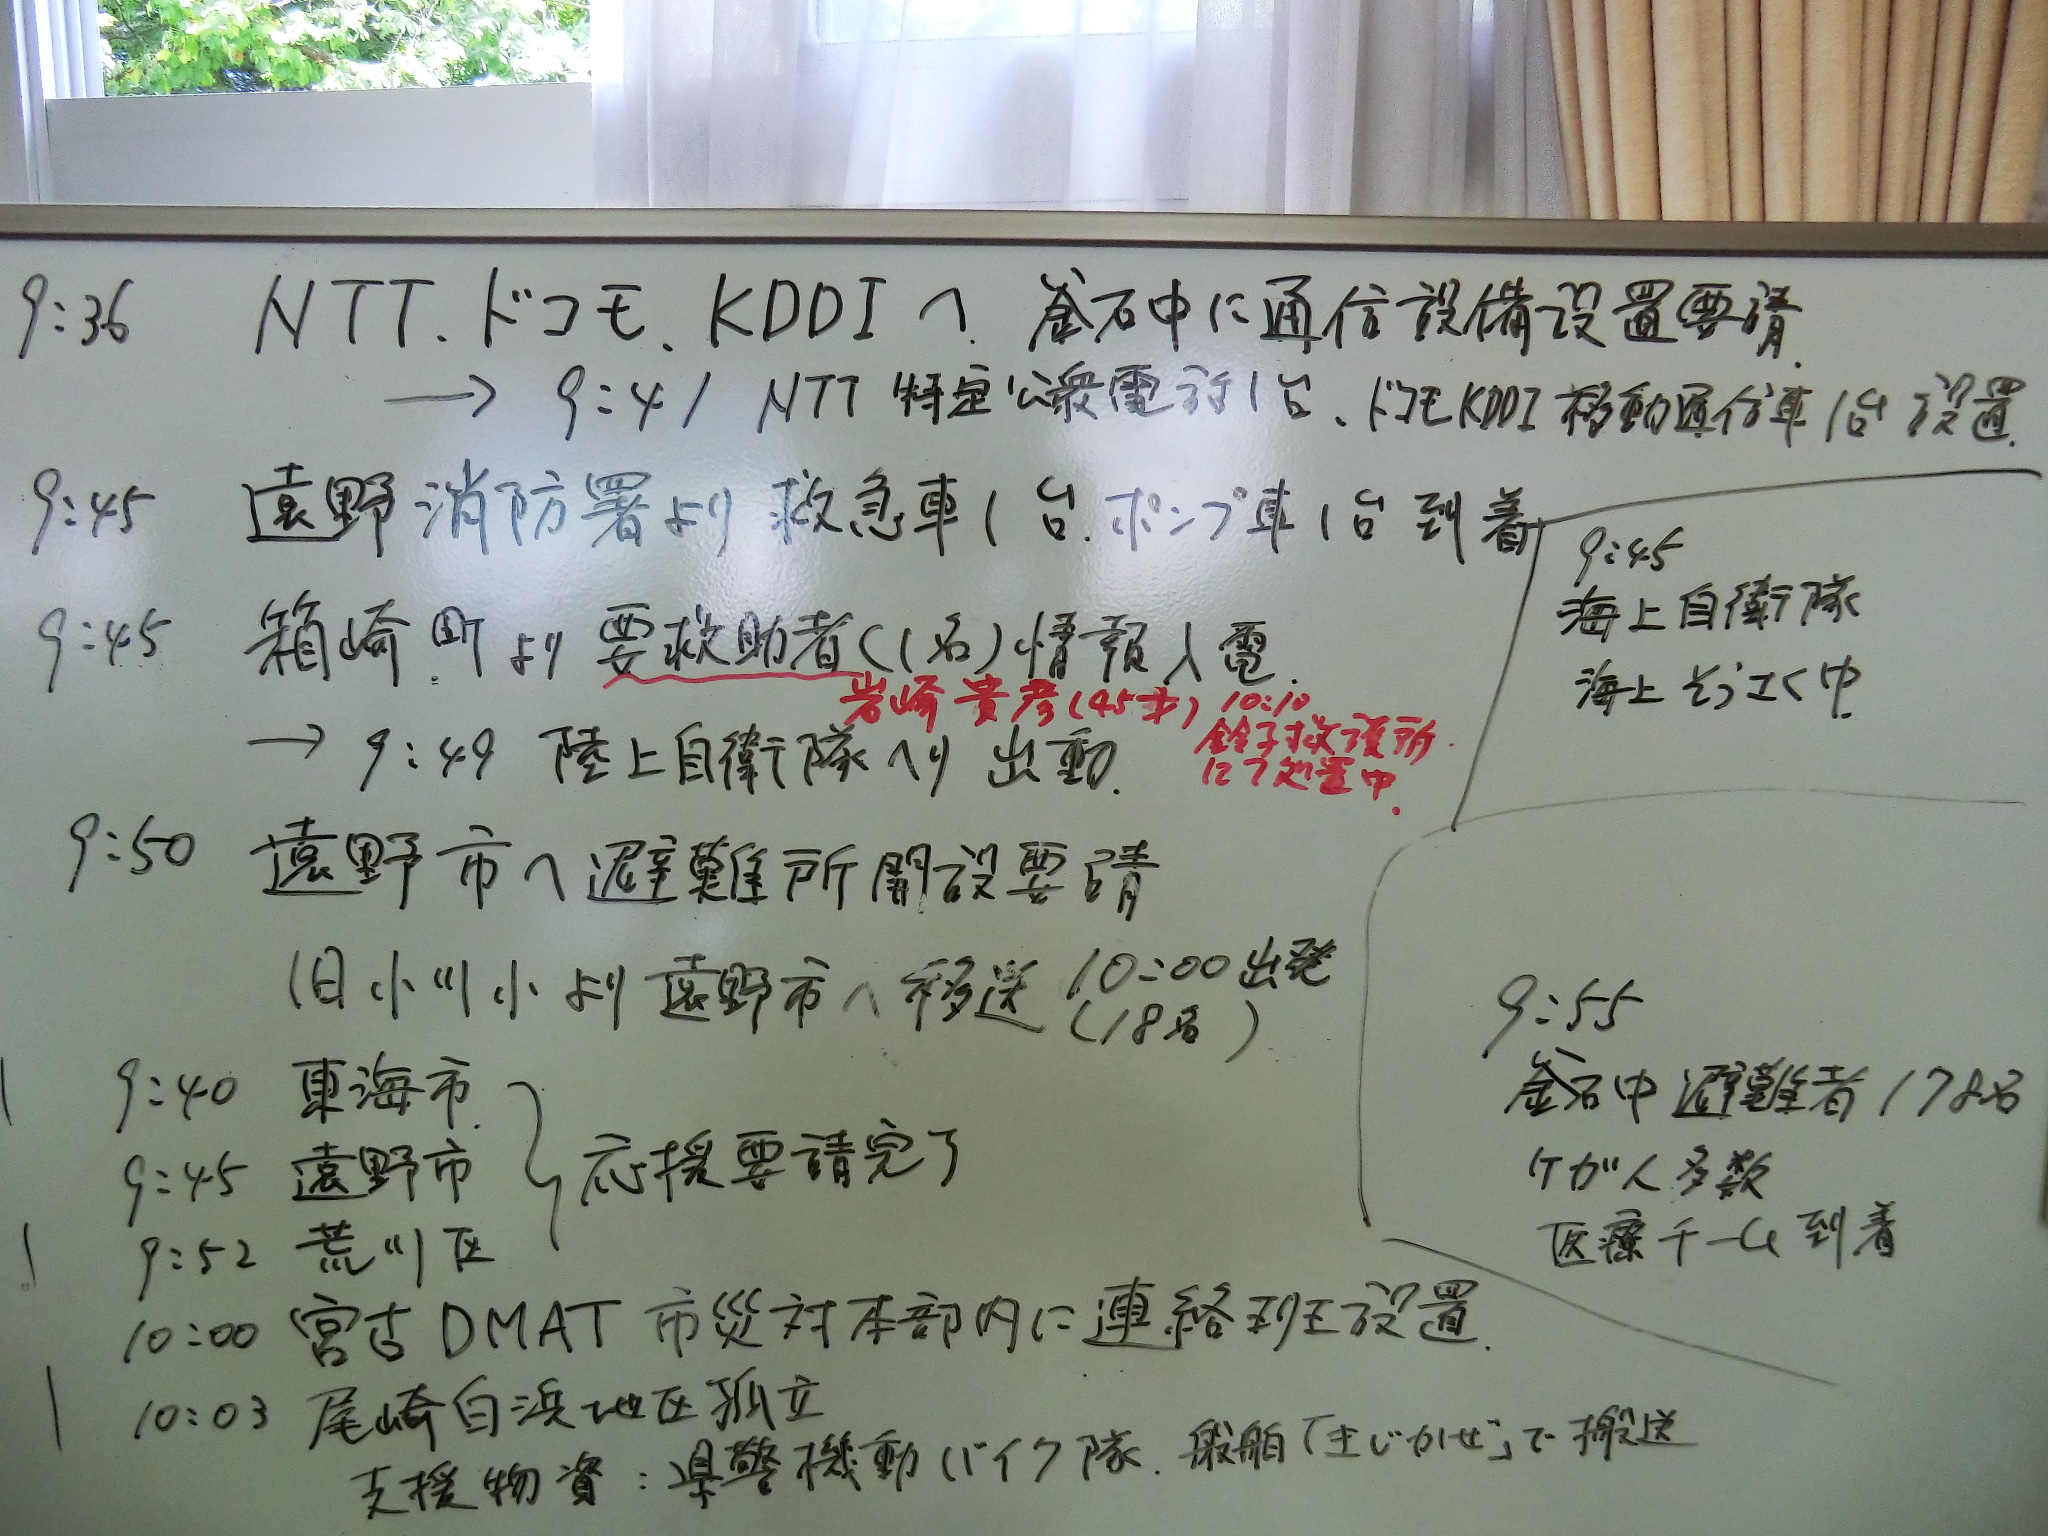 9:36 NTT、ドコモ、KDDIへ 釜石中に通信設備設置要請.
→ 9:41 NTT 特定公衆電話1台、ドコモKDDI移動通信車1台設置.
9:45 遠野消防署より救急車1台.ポンプ車1台到着
9:45 箱崎町より要救助者(1名)情報入電.
岩崎貴彦(45才) 10:10
鈴子救護所.
にて処置中.
→ 9:49 陸上自衛隊ヘリ出動.
9:50 遠野市へ避難所開設要請
旧小川小より遠野市へ移送 10:00出発
(18名)
9:40 東海市
9:45 遠野市
9:52 荒川区
応援要請完了
10:00 宮古DMAT 市災対本部内に連絡班設置.
10:03 尾崎白浜地区孤立
支援物資:県警機動バイク隊.船舶「はじかぜ」で搬送
9:45
海上自衛隊
海上そうさく中.
9:55
釜石中避難者178名
ケガ人多数
医療チーム到着